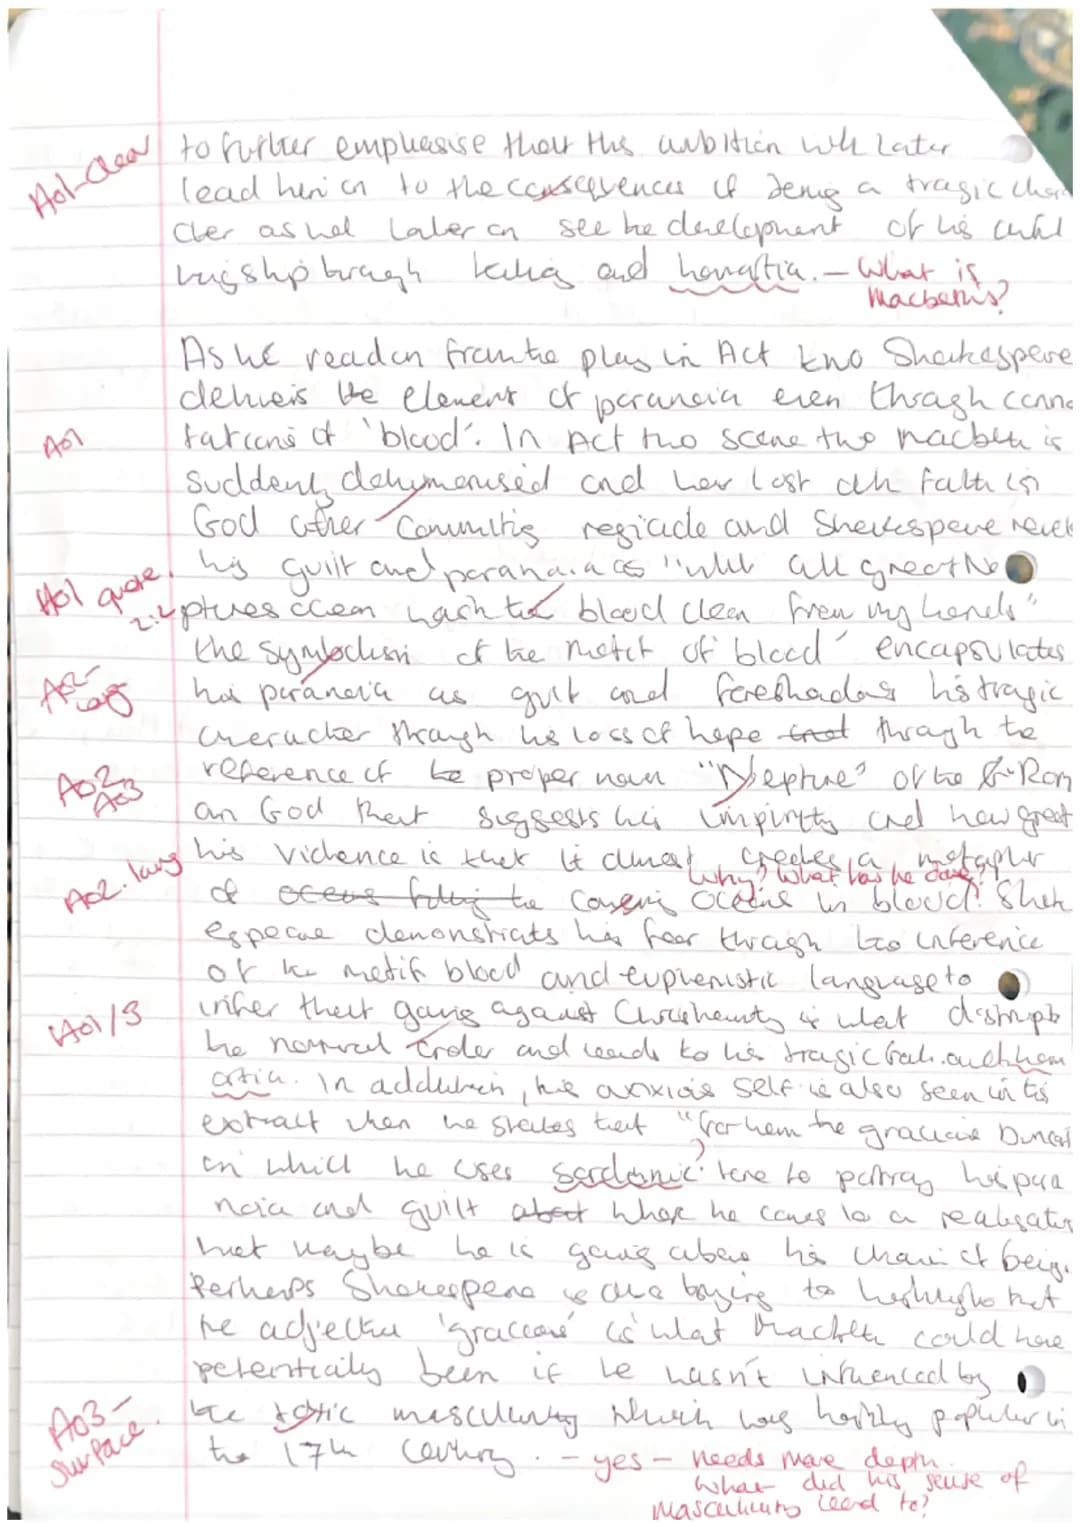 AO1-Clear
to further emphasise that this ambition will later
lead him on to the consequences of being a tragic chara
cter as well later on see the development of his awful
kingship through killing and hamartia. - What is
Macbeth's?
As we read on from the play in Act two Shakespere
delivers the element of paranoia even through conno
AO1
tations of 'blood'. In Act two scene two Macbeth is
suddenly dehumanised and has lost all faith in
God after commiting regicide and Shakespeare reveals
his guilt and paranoia as "will all great Ne
AO1 quote.
2:2
ptunes ocean wash this blood clean from my hands"
the symbolism of the motif of blood' encapsulates
AO2-
lang
his paranoia as guilt and foreshadows his tragic
character through his loss of hope through the
AO2
AO3
reference of the proper noun "Neptune" of the Rom
an God that suggests his impurity and how great
his violence is that it almost creates a metaphor
AO2. lang
Why? What has he done?
of oceans falling to covering oceans in blood. Shak
espeare demonstrats his fear through the inference
of the motif blood and euphemistic language to
AO1/3
infer that going against Christianity is what distrupts
the natural order and leads to his tragic fall and ham
artia. In addition, his anxious self is also seen in this
extract when he states that "for them the gracious Duncan
?
in which he uses sardonic tone to portray his para
noia and guilt about when he comes to a realisation
that maybe he is going above his chain of being.
Perhaps Shakespeare is also trying to highlight that
the adjective 'gracious' is what Macbeth could have
potentically been if he wasn't influenced by
AO3-
Surface.
the toxic masculinity which was highly popular in
the 17th century. - yes - needs more depth.
What did his sense of
masculinity lead to?